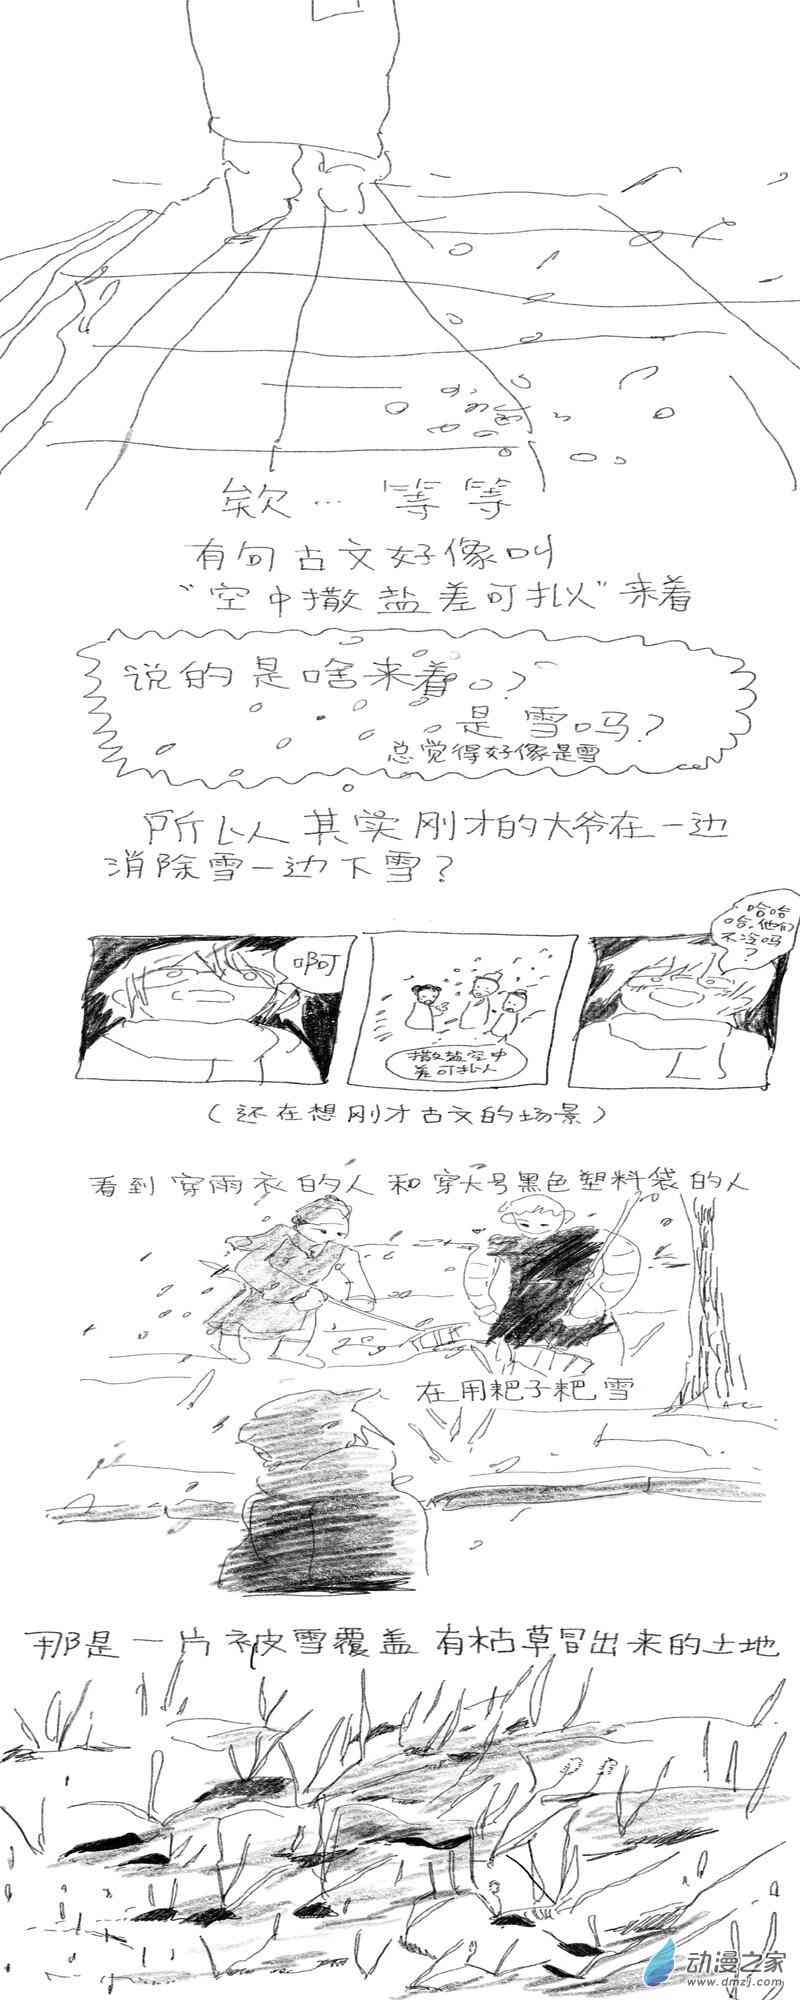 欸…等等
有句古文好像叫
“空中撒盐差可拟”来着
说的是啥来着。?
是雪吗?
总觉得好像是雪
所以其实刚才的大爷在一边
消除雪一边下雪?
啊
撒盐空中
差可拟
哈哈
哈,他们
不冷吗
?
(还在想刚才古文的场景)
看到穿雨衣的人和穿大号黑色塑料袋的人
在用耙子耙雪
那是一片被雪覆盖有枯草冒出来的土地
动漫之家
www.dmzj.com